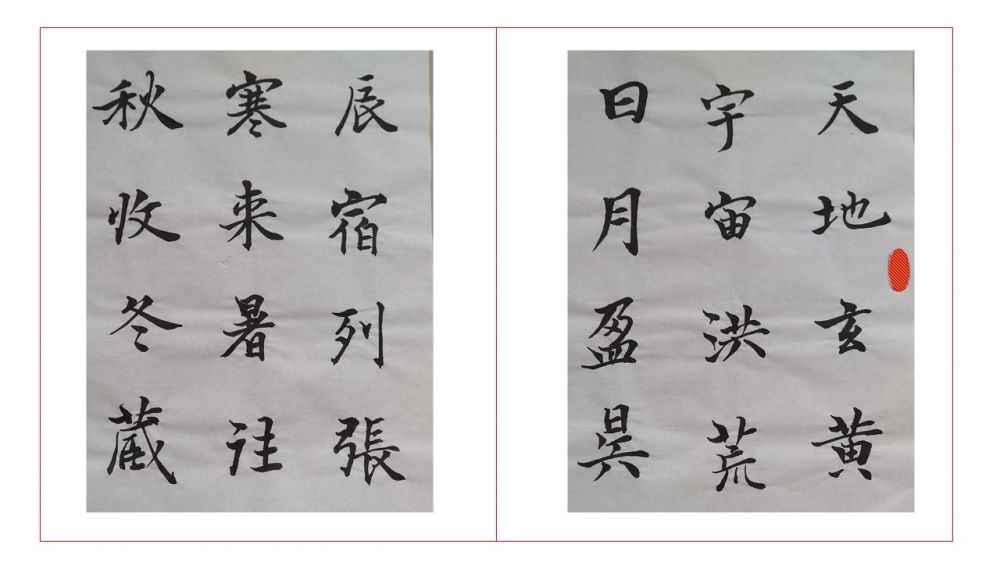 天地玄黄
宇宙洪荒
日月盈昃
辰宿列張
寒来暑往
秋收冬蔵